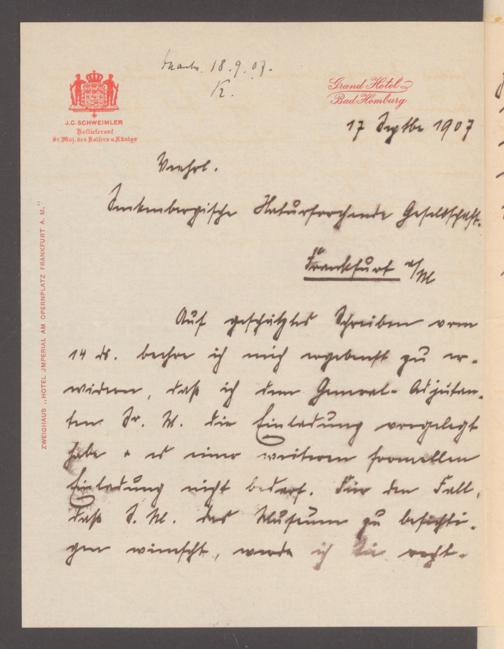 18.9.07.
K.
J.C. SCHWEIMLER
Hoflieferant
Sr. Maj. des Kaisers u. Königs
Grand Hotel
Bad Homburg
17 Septbr 1907
Verehrl.
Senkenbergische Naturforschende Gesellschaft.
Frankfurt a/M
Auf geschätztes Schreiben vom
14 ds. beehre ich mich ergebenst zu er-
widern, daß ich dem General-Adjutan-
ten Sr. M. die Einladung vorgelegt
habe & es einer weiteren formellen
Einladung nicht bedarf. Für den Fall,
daß S. M. das Museum zu besichti-
gen wünscht, werde ich Sie recht-
ZWEIGHAUS „HOTEL IMPERIAL AM OPERNPLATZ FRANKFURT A. M."